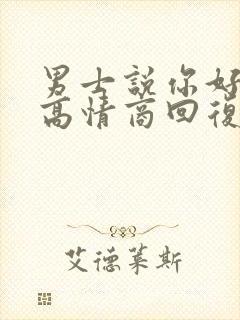 男士說你好
高情商回復
艾德萊斯